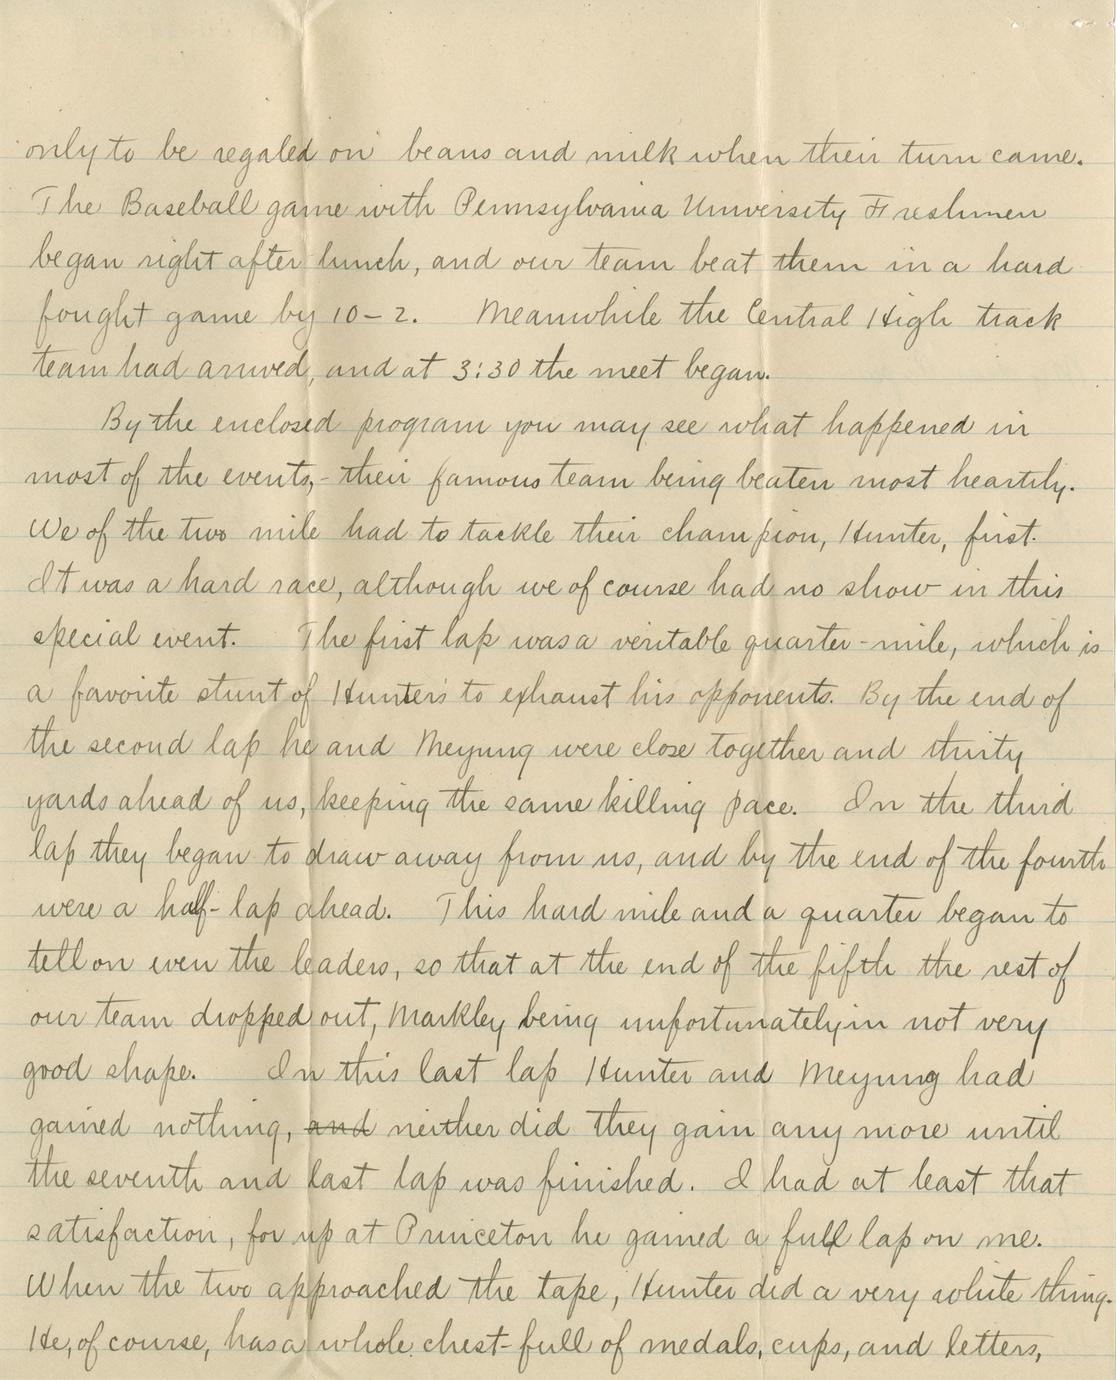 only to be regaled on beans and milk when their turn came.
The Baseball game with Pennsylvania University Freshmen
began right after lunch, and our team beat them in a hard
fought game by 10-2. Meanwhile the Central High track
team had arrived, and at 3:30 the meet began.
By the enclosed program you may see what happened in
most of the events,- their famous team being beaten most heartily.
We of the two mile had to tackle their champion, Hunter, first.
It was a hard race, although we of course had no show in this
special event. The first lap was a veritable quarter-mile, which is
a favorite stunt of Hunter's to exhaust his opponents. By the end of
the second lap he and Meyung were close together and thirty
yards ahead of us, keeping the same killing pace. In the third
lap they began to draw away from us, and by the end of the fourth
were a half-lap ahead. This hard mile and a quarter began to
tell on even the leaders, so that at the end of the fifth the rest of
our team dropped out, Markley being unfortunately in not very
good shape. In this last lap Hunter and Meyung had
gained nothing, and neither did they gain any more until
the seventh and last lap was finished. I had at least that
satisfaction, for up at Princeton he gained a full lap on me.
When the two approached the tape, Hunter did a very white thing.
He, of course, has a whole chest-full of medals, cups, and letters,